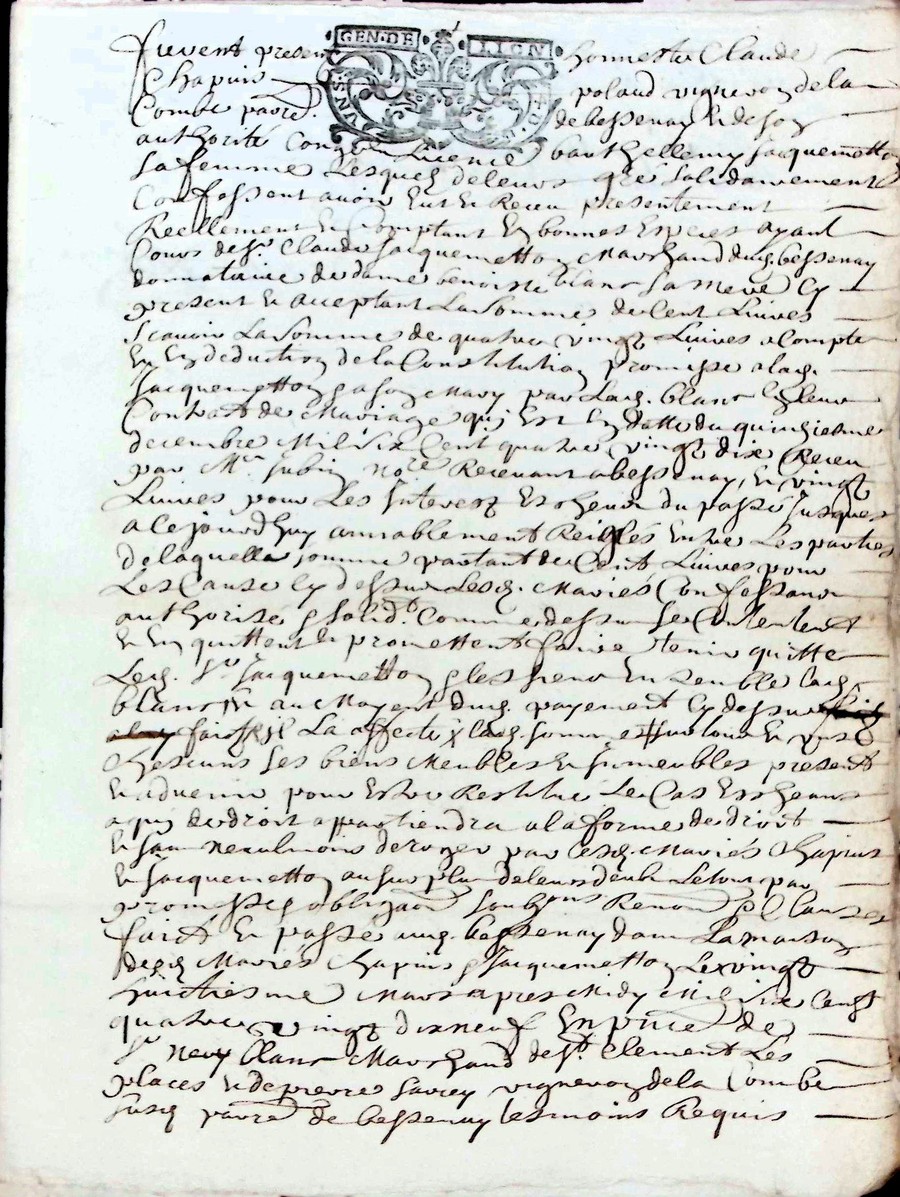 GEN·DE LION
furent present honneste Claude
Chapuis poland vigneron de la
Combe parrd. de bessenay & de son
authorité Congé Licence barthellemy Jacquemetton
sa femme Lesquels de leurs gré solidairement
Confessent avoir Eut & Receu presentement
Reellement & Comptant En bonnes Especes ayant
Cours de Sr. Claude Jacquemetton Marchand dud. bessenay
donnataire de dame benoiste blanc sa mere Cy
present & acceptant La Somme de Cent Livres
scavoir La Somme de quatre vingt Livres a Compte
& En deduction de la Constitution promise a lad.
Jacquemetton & a son Mary par Lad. blanc En leur
Contrat de Mariage qui Est En datte du quinziesme
decembre Mil Six Cent quatre vingt dix Receu
par Me. Jubin Nore. Recevant a bessenay, & vingt
Livres pour Les Interest Escheux du passé Jusques
a Ce jourdhuy amiablement Reiglés Entre Les parties
de laquelle somme partant de Cent Livres pour
Les Cause Cy dessus Lesd. Mariés Confessant
authorisé & solidt. Comme dessus se Contentent
& En quittent & promettent faire tenir quitte
Led. Sr. Jacquemetton & les siens Ensemble lad.
blanc au Moyent dud. payement Cy dessus
La affecté lad. somme sur tous & un
Chescuns ses biens Meubles & Immeubles present
& advenir pour Estre Restitué Le Cas Escheant
a qui de droit appartiendra a la forme de droit
& sans Neaulmoins deroger par Cesd. Mariés Chapuis
& Jacquemetton au surplus de leurs deub Le tout par
promesses obligaon. soubzons Renon. & Clauses
faict & passé aud. bessenay dans La maison
desd. Mariés Chapuis & Jacquemetton Le vingt
huictiesme Mars apres Midy Mil Six Cent
quatre vingt dix neuf En pnce de
Sr. Nery blanc Marchand de St. Clement Les
places & de pierre Savey vigneron de la Combe
susd parre. de bessenay tesmoins Requis